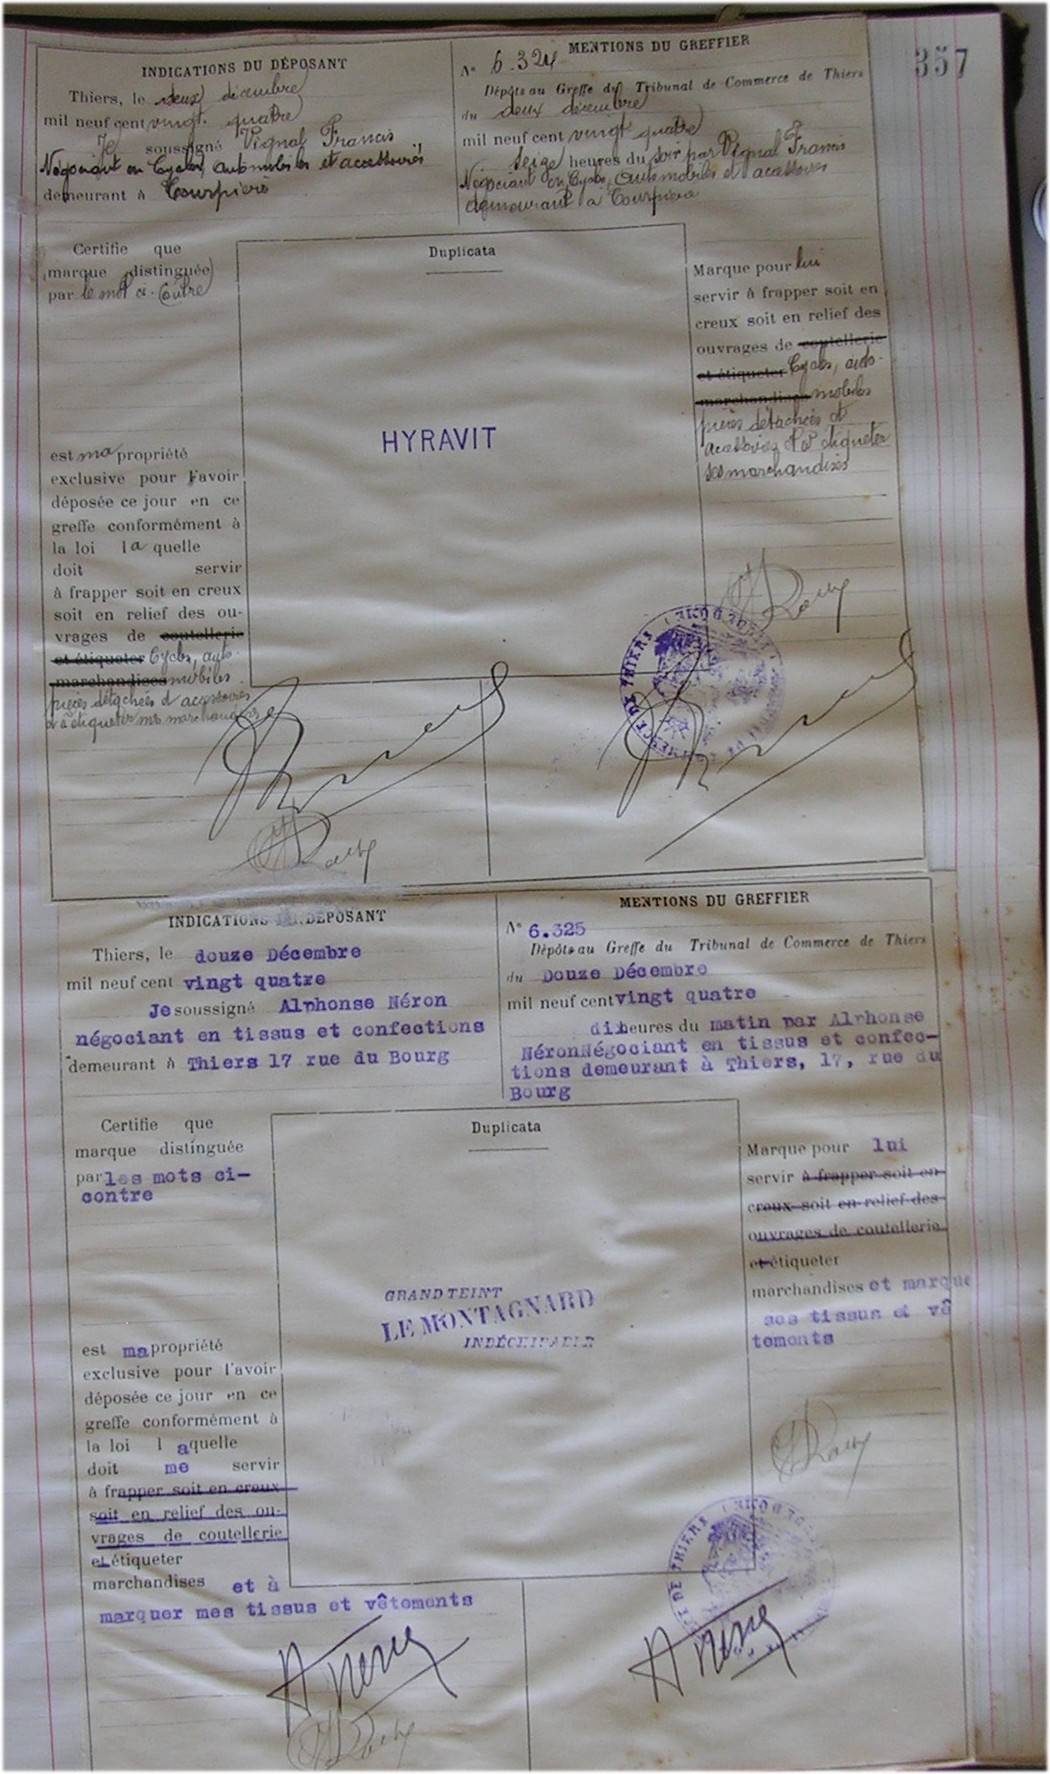 357
INDICATIONS DU DÉPOSANT
Thiers, le deux décembre
mil neuf cent vingt quatre
Je soussigné Vignal Francis
Négociant en Cycles, automobiles et accessoires
demeurant à Courpière
MENTIONS DU GREFFIER
N° 6.324
Dépôts au Greffe du Tribunal de Commerce de Thiers
du deux décembre
mil neuf cent vingt quatre
seize heures du soir par Vignal Francis
Négociant en Cycles, automobiles et accessoires
demeurant à Courpière
Certifie que
marque distinguée
par le mot ci-contre
est ma propriété
exclusive pour l'avoir
déposée ce jour en ce
greffe conformément à
la loi la quelle
doit servir
à frapper soit en creux
soit en relief des ou-
vrages de coutellerie
et étiqueter Cycles, auto-
marchandises mobiles
pièces détachées et accessoires
et à étiqueter mes marchandises
Duplicata
HYRAVIT
Marque pour lui
servir à frapper soit en
creux soit en relief des
ouvrages de coutellerie
et étiqueter Cycles, auto-
marchandises mobiles
pièces détachées et
accessoires et à étiqueter
ses marchandises
INDICATIONS DU DÉPOSANT
Thiers, le douze Décembre
mil neuf cent vingt quatre
Je soussigné Alphonse Néron
négociant en tissus et confections
demeurant à Thiers 17 rue du Bourg
MENTIONS DU GREFFIER
N° 6.325
Dépôts au Greffe du Tribunal de Commerce de Thiers
du Douze Décembre
mil neuf cent vingt quatre
dix heures du matin par Alphonse
Néron Négociant en tissus et confec-
tions demeurant à Thiers, 17, rue du
Bourg
Certifie que
marque distinguée
par les mots ci-
contre
est ma propriété
exclusive pour l'avoir
déposée ce jour en ce
greffe conformément à
la loi l aquelle
doit me servir
à frapper soit en creux
soit en relief des ou-
vrages de coutellerie
et étiqueter
marchandises et à
marquer mes tissus et vêtements
Duplicata
GRAND TEINT
LE MONTAGNARD
INDÉCHIRABLE
Marque pour lui
servir à frapper soit en
creux soit en relief des
ouvrages de coutellerie
et étiqueter
marchandises et marque
ses tissus et vê
tements